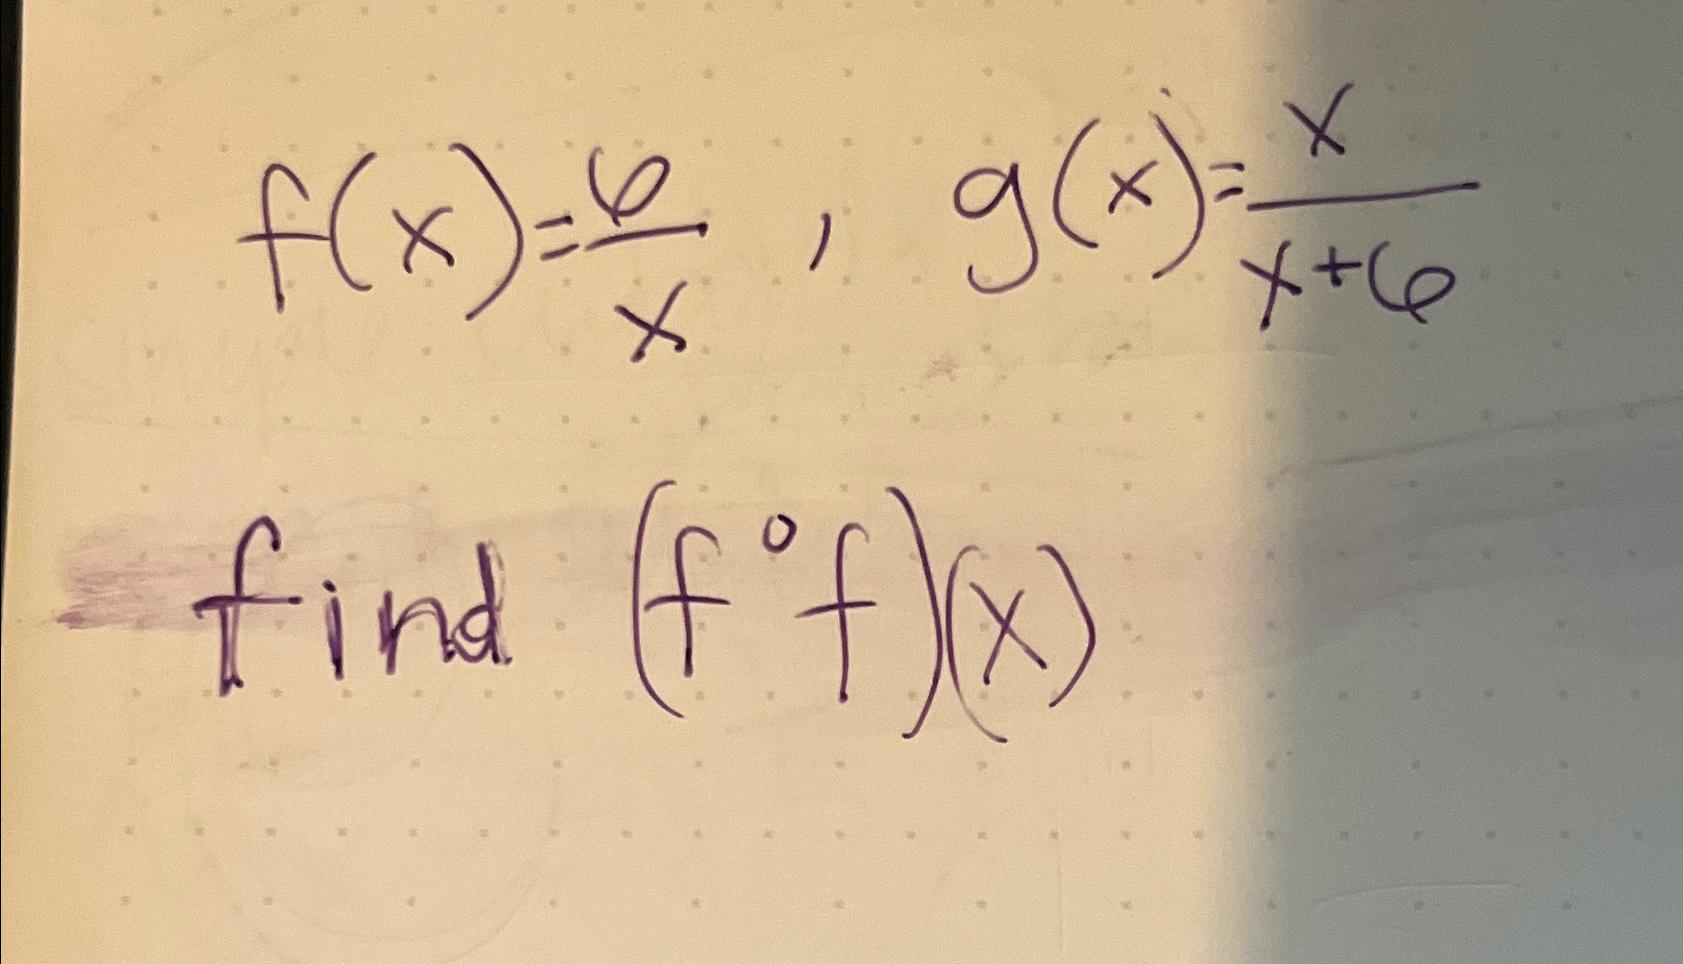 f(x)=6/x , g(x)=x/x+6
find (f°f)(x)